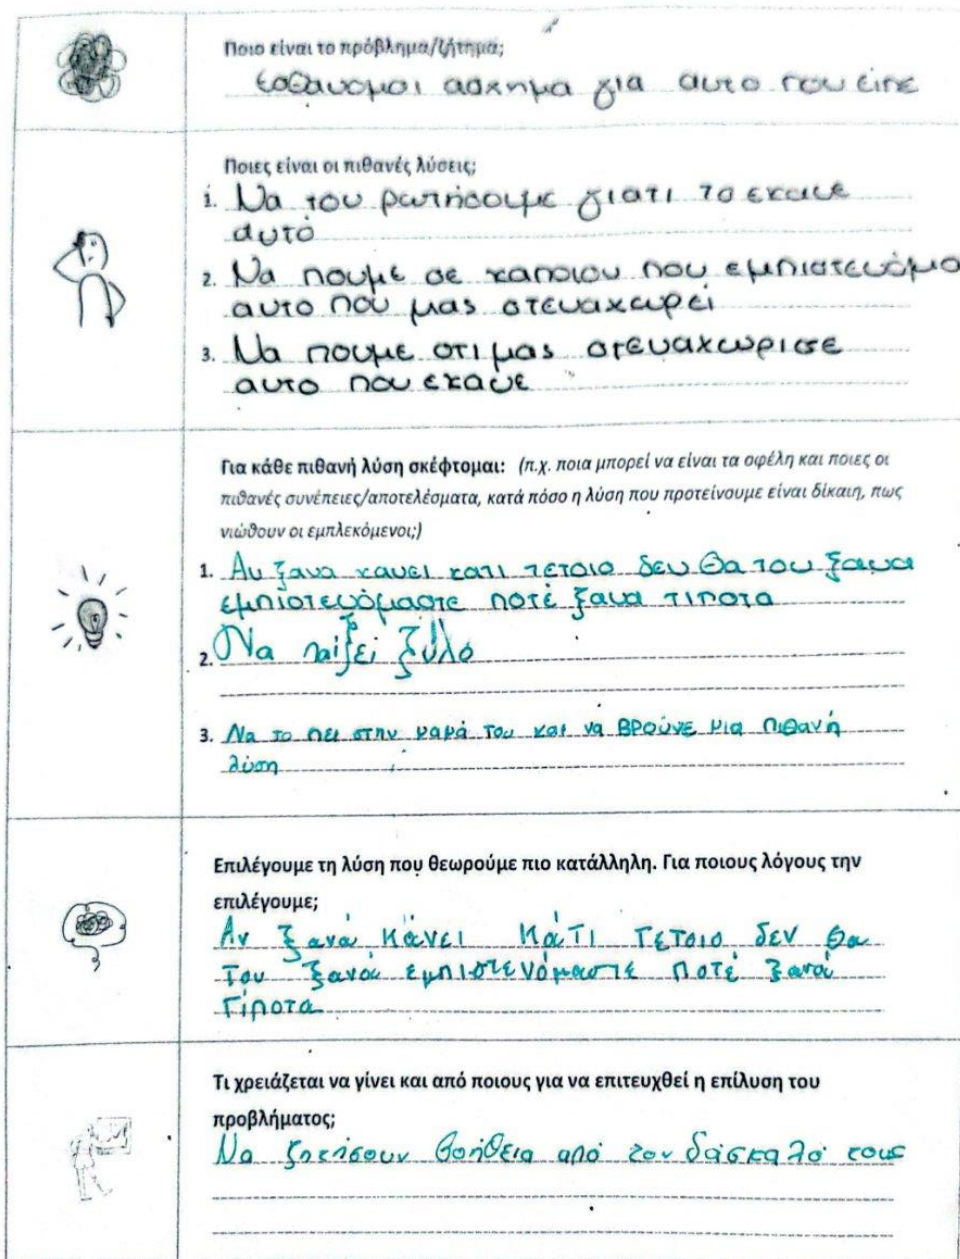 Ποιο είναι το πρόβλημα/ζήτημα;
εσθανομαι ασχημα για αυτο που είπε
Ποιες είναι οι πιθανές λύσεις;
1. Να του ρωτήσουμε γιατι το εκανε
αυτό
2. Να πουμε σε καποιον που εμπιστευόμα
αυτο που μας στεναχωρεί
3. Να πουμε οτι μας στεναχωρισε
αυτο που εκανε
Για κάθε πιθανή λύση σκέφτομαι: (π.χ. ποια μπορεί να είναι τα οφέλη και ποιες οι
πιθανές συνέπειες/αποτελέσματα, κατά πόσο η λύση που προτείνουμε είναι δίκαιη, πως
νιώθουν οι εμπλεκόμενοι;)
1. Αν ξανα κανει κατι τέτοιο δεν θα του ξανα
εμπιστευόμαστε ποτέ ξανα τιποτα
2. Να παίξει ξύλο
3. Να το πει στην μαμά του και να βρούνε μια πιθανή
λύση
Επιλέγουμε τη λύση που θεωρούμε πιο κατάλληλη. Για ποιους λόγους την
επιλέγουμε;
Αν ξανά κάνει κάτι τέτοιο δεν θα
του ξανά εμπιστευόμαστε ποτέ ξανά
τίποτα
Τι χρειάζεται να γίνει και από ποιους για να επιτευχθεί η επίλυση του
προβλήματος;
Να ζητήσουν βοήθεια από τον δάσκαλό τους